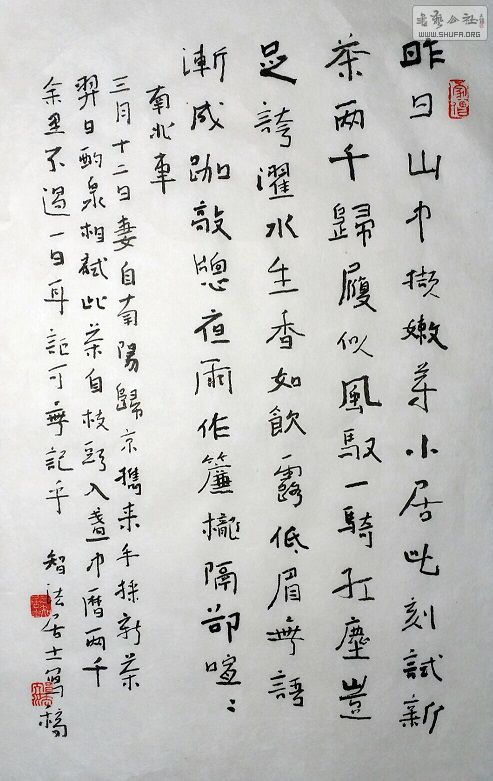 书艺公社
WWW.SHUFA.ORG
昨日山中擷嫩芽小居此刻試新
茶兩千歸履似風馭一騎紅塵豈
足誇濯水生香如飲露低眉無語
漸成跏敲牕夜雨作簾櫳隔卻喧〻
南北車
三月十二日妻自南陽歸京攜来手採新茶
翌日酌泉相試此茶自枝頭入盞中曆兩千
余里不過一日耳詎可無記乎 智法居士寫稿